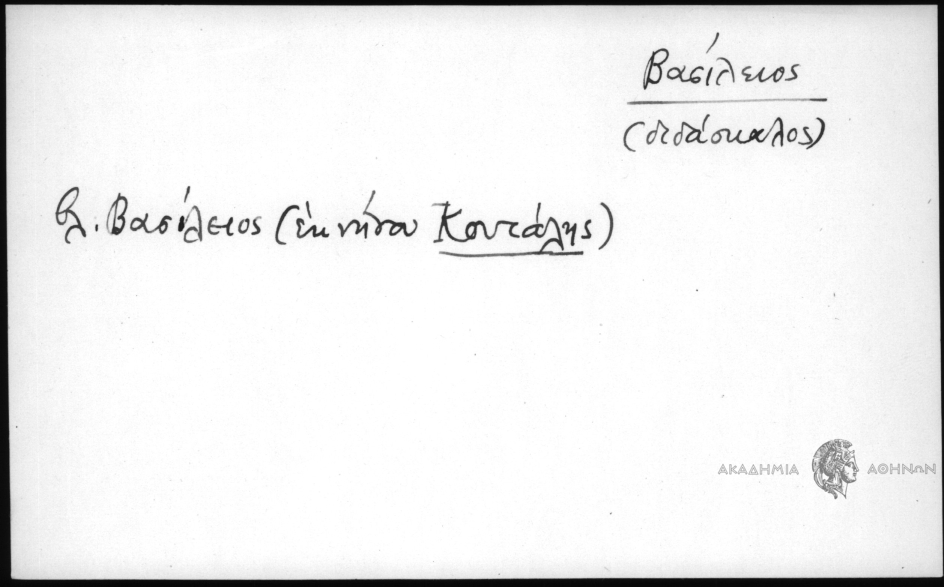 Βασίλειος
(διδάσκαλος)
βλ. Βασίλειος (ἐκ νήσου Κουτάλης)
ΑΚΑΔΗΜΙΑ ΑΘΗΝΩΝ